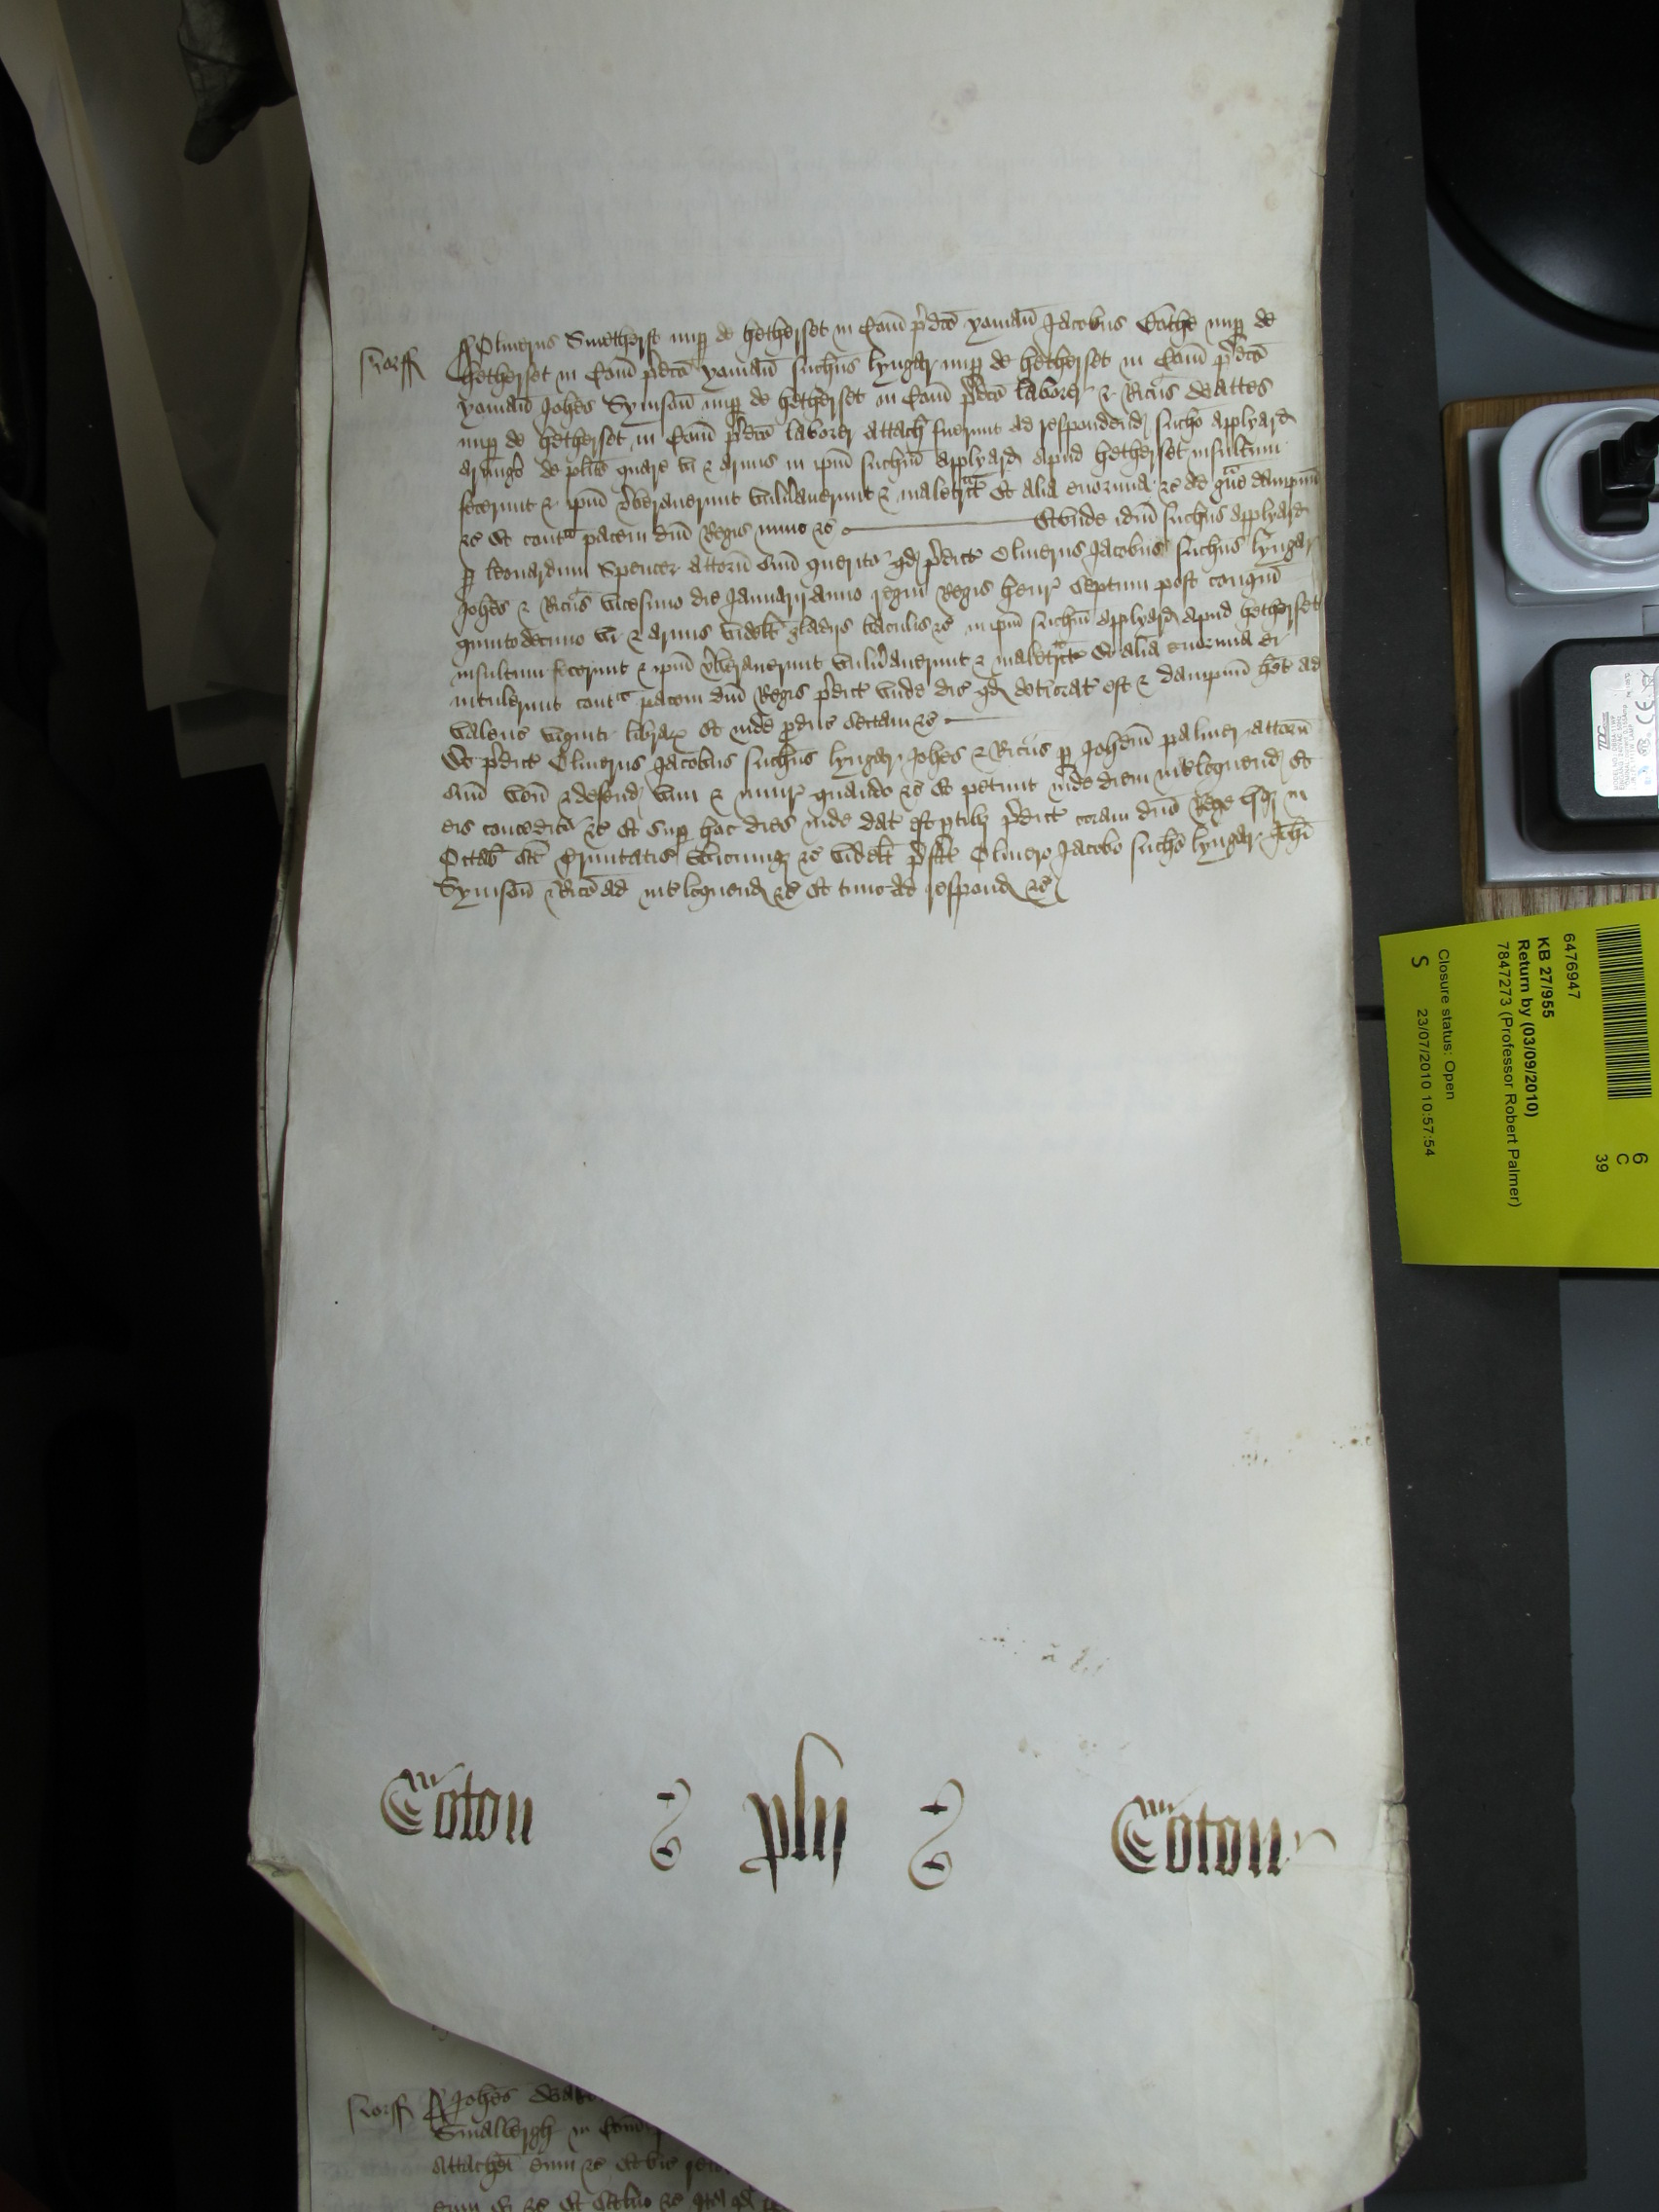 Norff
Oliverus Smetherst nup de Hetherset in Com pdco yoman Jacobus Cache nup de
Hetherset in Com pdco yoman Nichus lyngar nup de Hetherset in Com pdco
yoman Johes Symson nup de Hetherset in Com pdco laborer & Ricus
nup de Hetherset in Com pdco laborer attach fuerunt ad respondend Nicho Applyard
de plito quare vi & armis in ipm Nichm Applyard apud Hetherset insultum
fecerunt & ipm vberaverunt vulnaverunt & maletrct Et alia enormia &c ad gve dampnu
&c Et contra pacem dni Regis nunc &c Et unde idm Nichus Applyard
p leonardum Spencer attorn suu querit qd pdict Oliverus Jacobus Nichus lyngar
Johes & Ricus vicesimo die Januarii anno regni Regis Henr septimi post conqm
quintodecimo vi & armis videlt gladiis baculis &c in ipm Nichm Applyard apud Hetherset
insultum fecerunt & ipm vberaverunt vulnaverunt & maletrct Et alia enormia ei
intulerunt contra pacem dni Regis pdict unde dic qd deteriorat est & dampnum het ad
valenc viginti librar Et inde pduc sectam &c
Et pdict Oliverus Jacobus Nichus lyngar Johes & Ricus p Johem palmer attorn
suu ven & defend vim & iniur quando &c Et petunt inde diem inteloquend Et
eis conceditr &c Et sup hoc dies inde dat est ptibz pdict coram dno Rege usqz in
Octab sce Trinitatis ubicumqz &c videlt pfat Olivero Jacobo Nicho lyngar Johi
Symson & Rico ad inteloquend &c Et tunc ad respond &c
Coton pln Coton
Norff Johes
Smalbergh in Com
attachei
6476947
KB 27/955
Return by (03/09/2010)
7847273 (Professor Robert Palmer)
Closure status: Open
S 23/07/2010 10:57:54
6
C
39